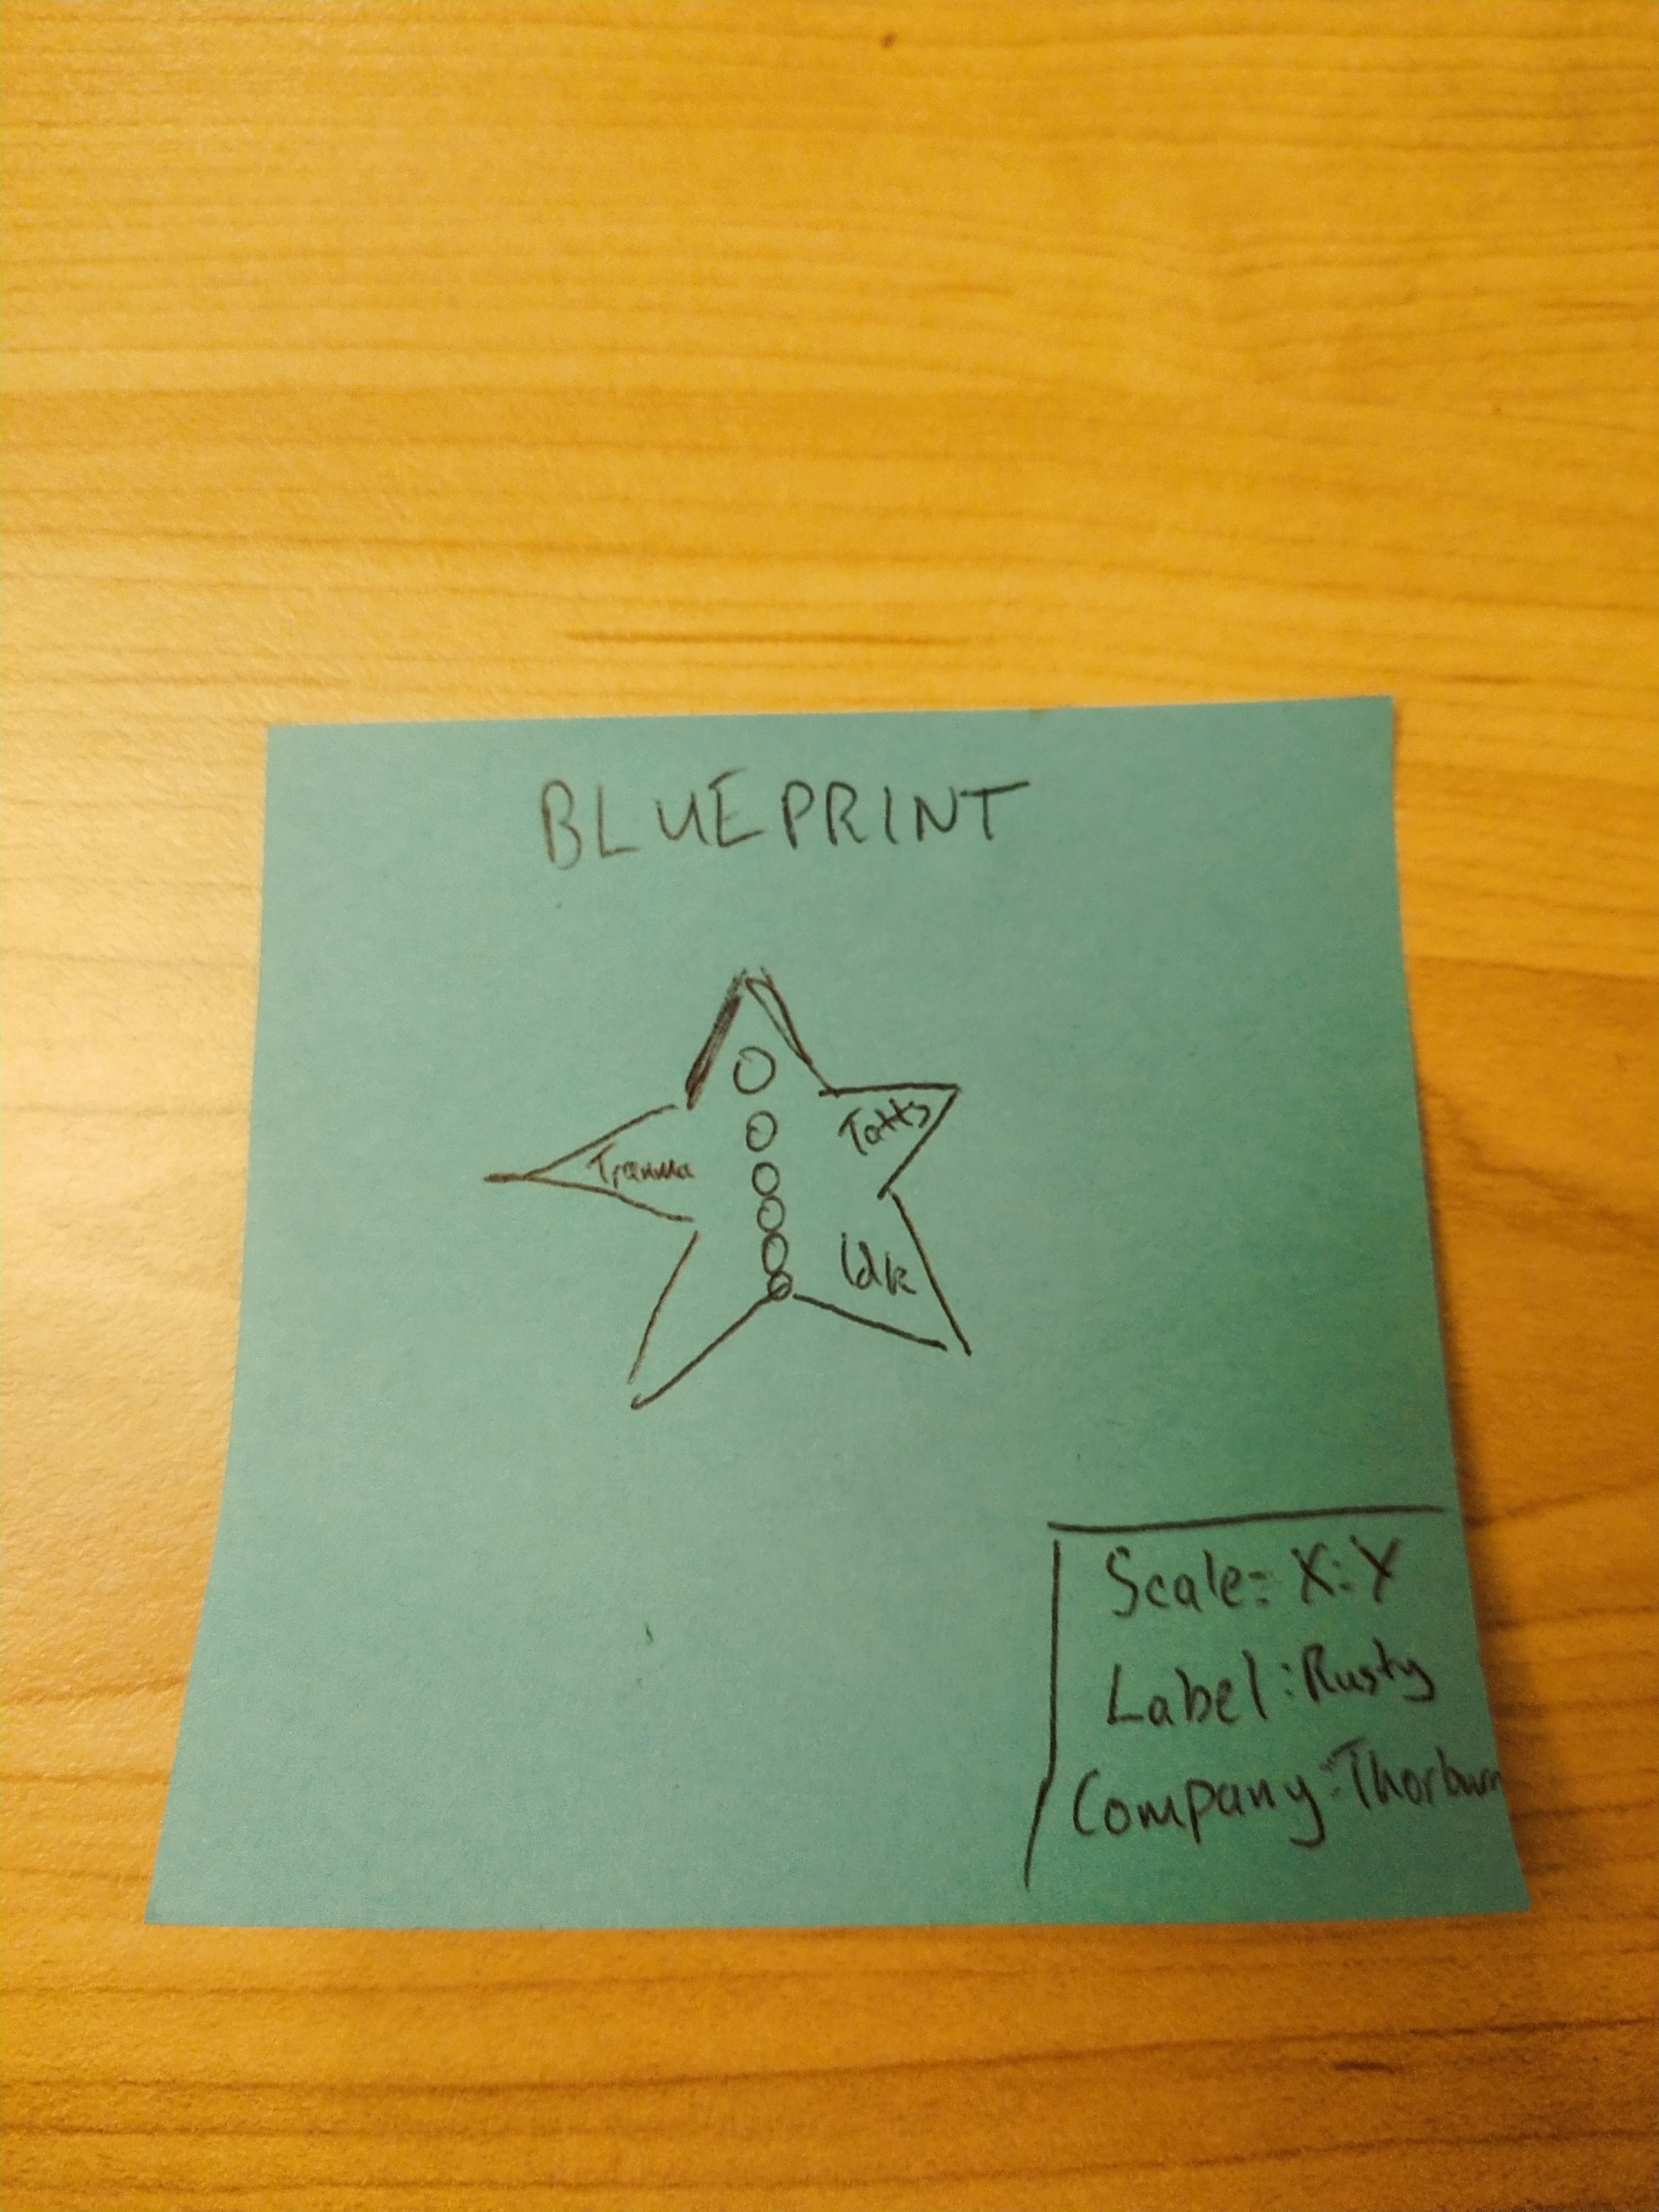 BLUEPRINT
Tatts
Trauma
Idk
Scale= X:Y
Label: Rusty
Company: Thorburn